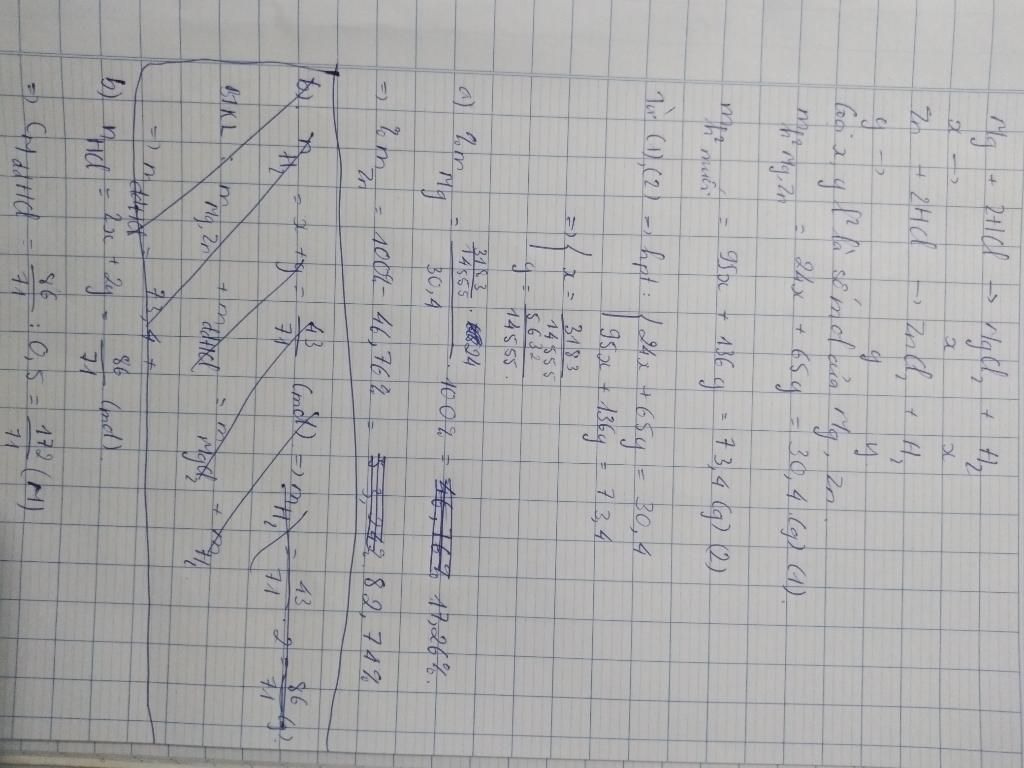 Mg + 2HCl → MgCl₂ + H₂
x → x x
Zn + 2HCl → ZnCl₂ + H₂
y → y y
Gọi x, y là số mol của Mg, Zn
m Mg, Zn = 24x + 65y = 30,4 (g) (1).
m muối = 95x + 136y = 73,4 (g) (2)
Từ (1), (2) ⇒ hpt: { 24x + 65y = 30,4
95x + 136y = 73,4
⇒ { x = 3183/14555
y = 5632/14555.
a) %m Mg = (3183/14555 · 24)/30,4 · 100% = 17,26%.
⇒ %m Zn = 100% - 46,76% = 82,74%
b) n H₂ = x + y = 43/71 (mol) ⇒ m H₂ = 43/71 · 2 = 86/71 (g).
ĐLBTKL: m Mg, Zn + m ddHCl = m MgCl₂ + m H₂
⇒ m ddHCl = 73,4 +
b) n HCl = 2x + 2y = 86/71 (mol).
⇒ CM ddHCl = 86/71 : 0,5 = 172/71 (M)